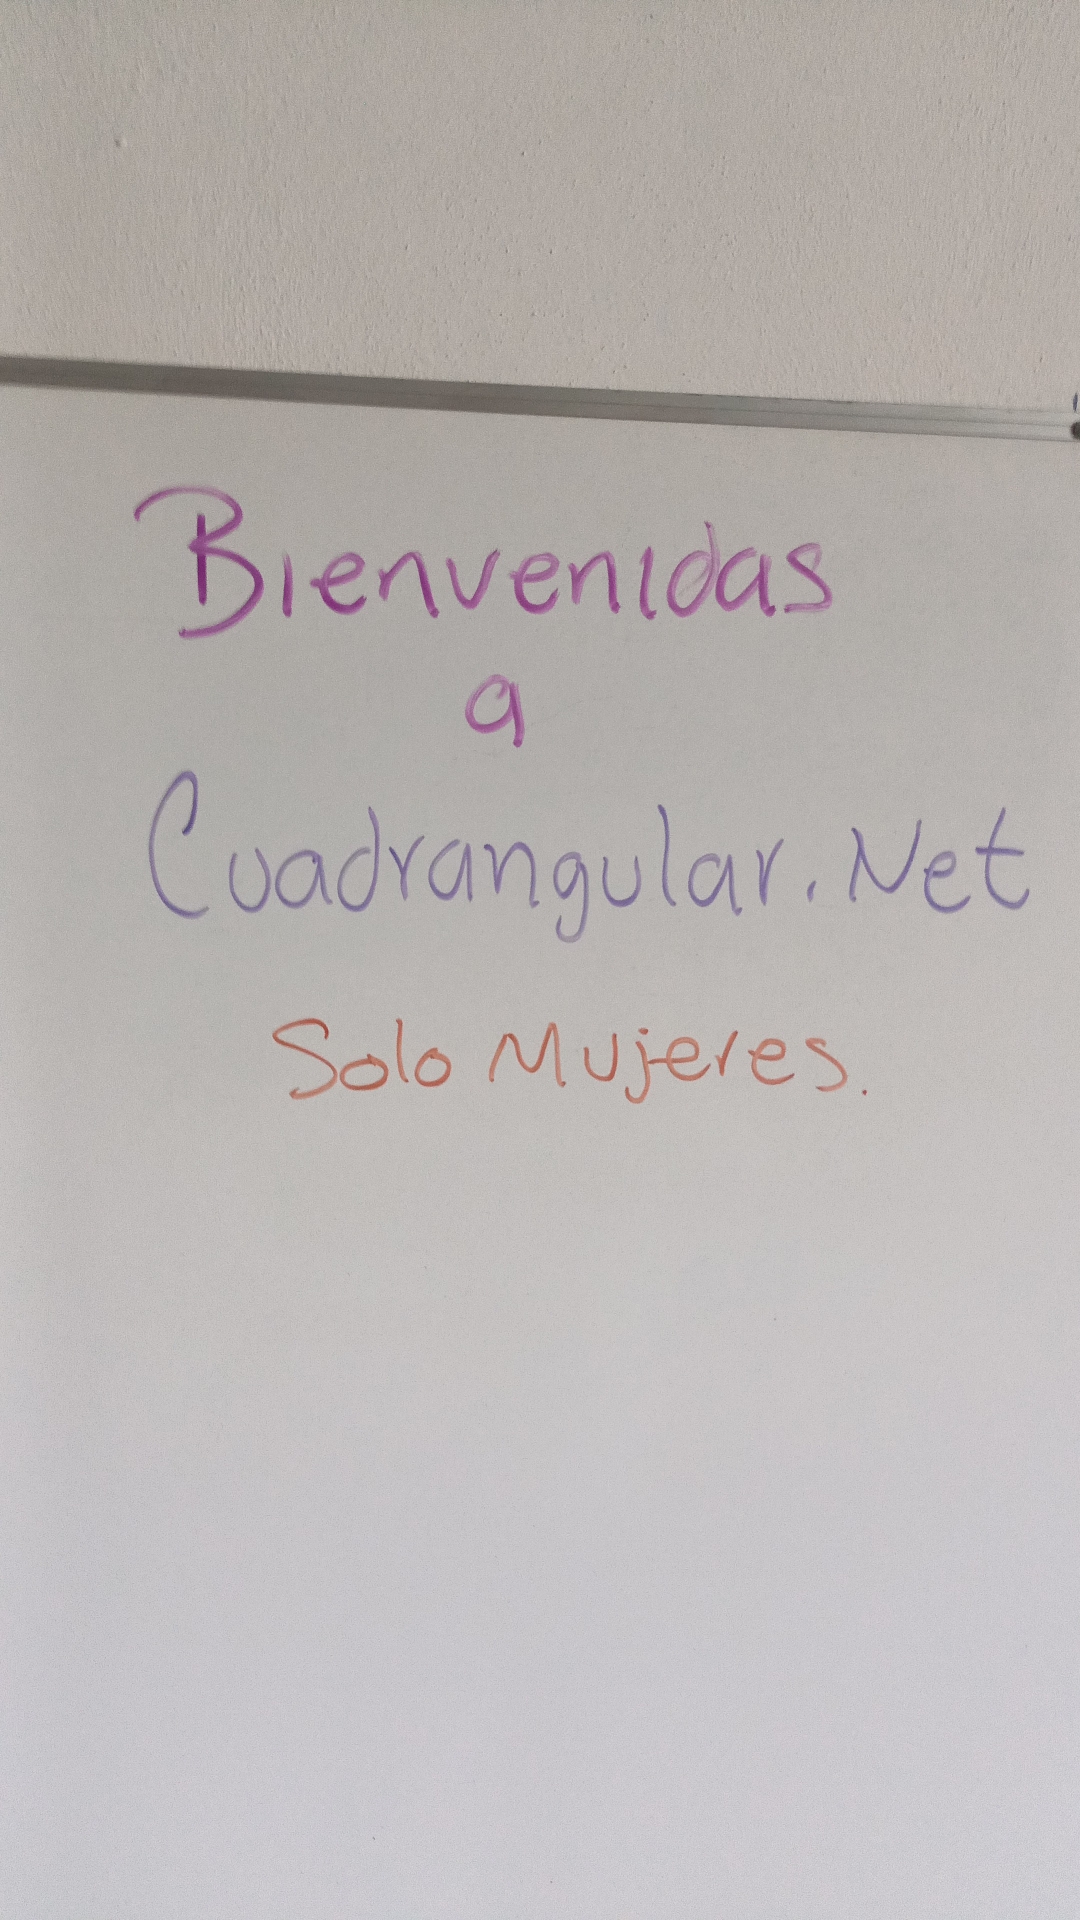 Bienvenidas
a
Cuadrangular.Net
Solo Mujeres.